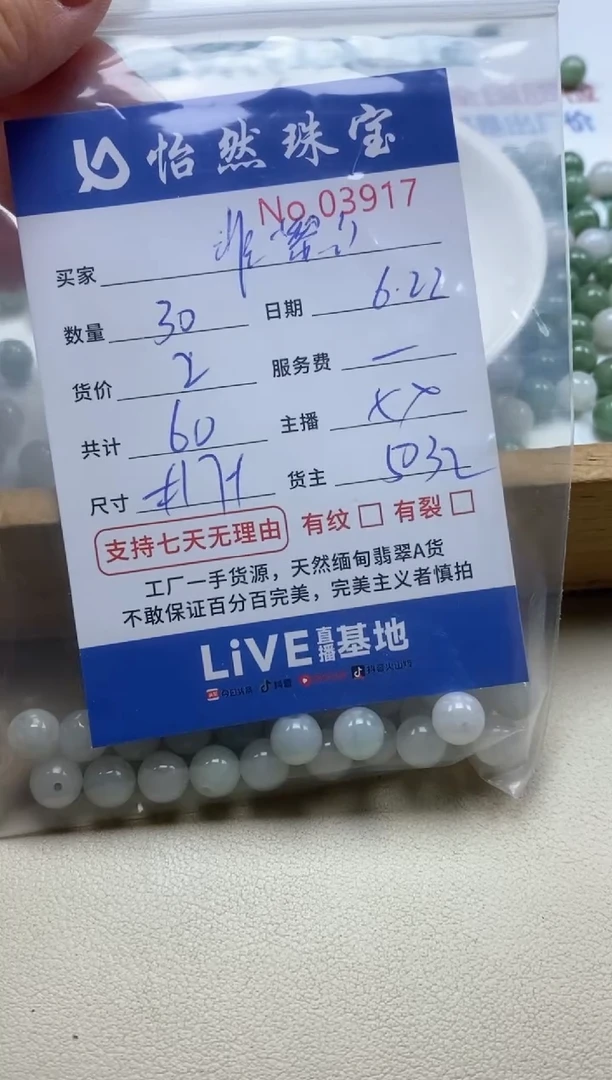 怡然珠宝
No 03917
买家
数量 30 日期 6.22
货价 2 服务费 一
共计 60 主播 XX
尺寸 货主 5032
支持七天无理由 有纹 □ 有裂 □
工厂一手货源，天然缅甸翡翠A货
不敢保证百分百完美，完美主义者慎拍
LiVE直播基地
今日头条 抖音 抖音火山版